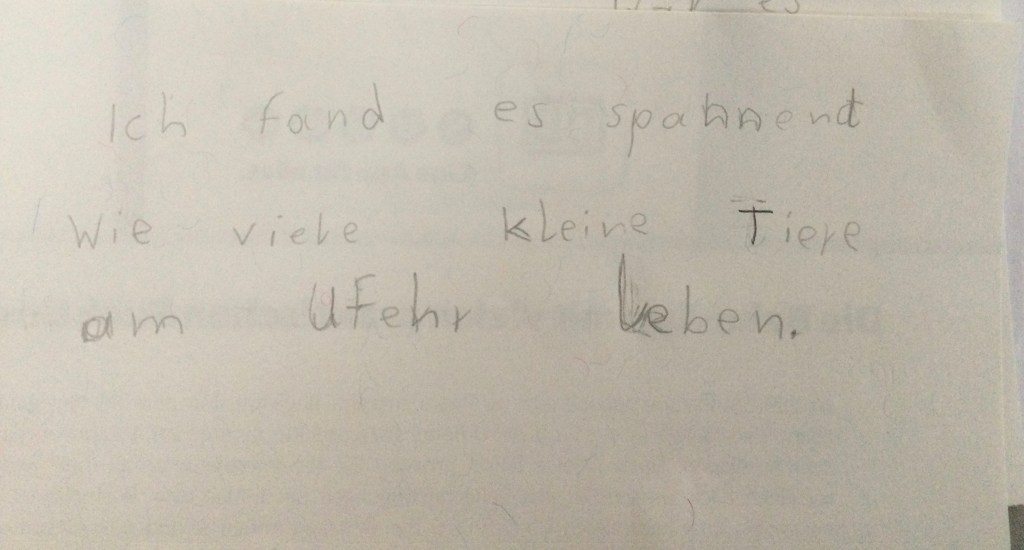 Ich fand es spahnend
Wie viele kleine Tiere
am Ufehr leben.